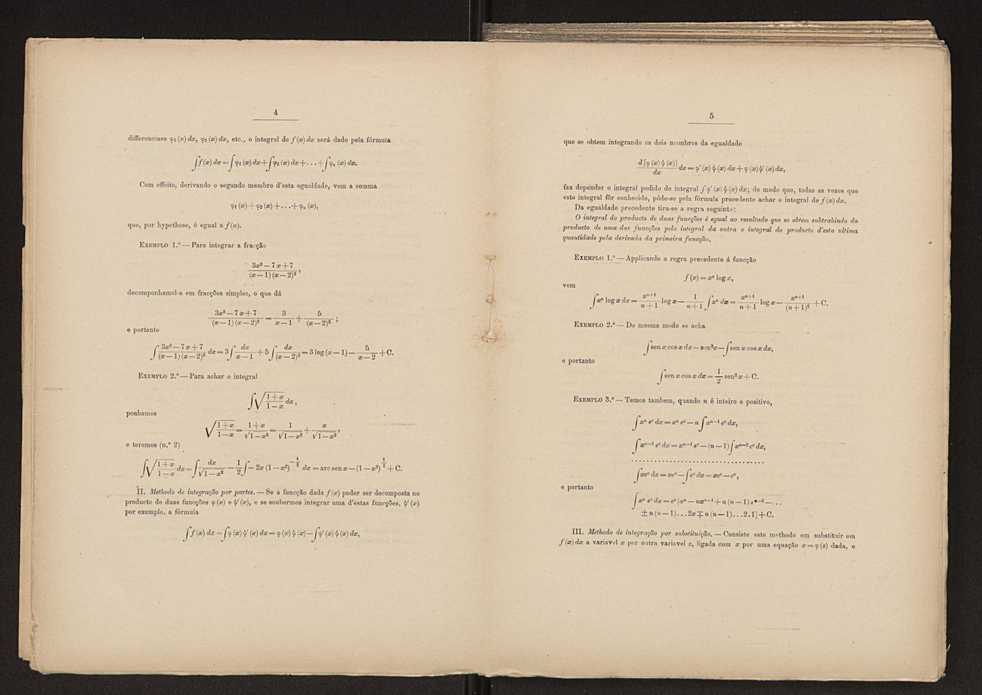 4
differenciaes φ₁ (x) dx, φ₂ (x) dx, etc., o integral de f (x) dx será dado pela fórmula
∫ f (x) dx = ∫ φ₁ (x) dx + ∫ φ₂ (x) dx + . . . + ∫ φₙ (x) dx.
Com effeito, derivando o segundo membro d'esta egualdade, vem a somma
φ₁ (x) + φ₂ (x) + . . . + φₙ (x),
que, por hypothese, é egual a f (x).
EXEMPLO 1.º — Para integrar a fracção
(3x² — 7x + 7) / ((x — 1) (x — 2)²),
decomponhamol-a em fracções simples, o que dá
(3x² — 7x + 7) / ((x — 1) (x — 2)²) = 3 / (x — 1) + 5 / (x — 2)² ;
e portanto
∫ (3x² — 7x + 7) / ((x — 1) (x — 2)²) dx = 3 ∫ dx / (x — 1) + 5 ∫ dx / (x — 2)² = 3 log (x — 1) — 5 / (x — 2) + C.
EXEMPLO 2.º — Para achar o integral
∫ √((1 + x) / (1 — x)) dx,
ponhamos
√((1 + x) / (1 — x)) = (1 + x) / √(1 — x²) = 1 / √(1 — x²) + x / √(1 — x²),
e teremos (n.º 2)
∫ √((1 + x) / (1 — x)) dx = ∫ dx / √(1 — x²) — 1/2 ∫ — 2x (1 — x²)^(—1/2) dx = arc sen x — (1 — x²)^(1/2) + C.
II. Methodo de integração por partes. — Se a funcção dada f (x) poder ser decomposta no
producto de duas funcções φ (x) e ψ' (x), e se soubermos integrar uma d'estas funcções, ψ' (x)
por exemplo, a fórmula
∫ f (x) dx = ∫ φ (x) ψ' (x) dx = φ (x) ψ (x) — ∫ φ' (x) ψ (x) dx,
5
que se obtem integrando os dois membros da egualdade
d [φ (x) ψ (x)] / dx dx = φ' (x) ψ (x) dx + φ (x) ψ' (x) dx,
faz depender o integral pedido do integral ∫ φ' (x) ψ (x) dx; de modo que, todas as vezes que
este integral fôr conhecido, póde-se pela fórmula precedente achar o integral de f (x) dx.
Da egualdade precedente tira-se a regra seguinte:
O integral do producto de duas funcções é egual ao resultado que se obtem subtrahindo do
producto de uma das funcções pelo integral da outra o integral do producto d'esta ultima
quantidade pela derivada da primeira funcção.
EXEMPLO 1.º — Applicando a regra precedente á funcção
f (x) = xⁿ log x,
vem
∫ xⁿ log x dx = xⁿ⁺¹ / (n + 1) log x — 1 / (n + 1) ∫ xⁿ dx = xⁿ⁺¹ / (n + 1) log x — xⁿ⁺¹ / (n + 1)² + C.
EXEMPLO 2.º — Do mesmo modo se acha
∫ sen x cos x dx = sen² x — ∫ sen x cos x dx,
e portanto
∫ sen x cos x dx = 1/2 sen² x + C.
EXEMPLO 3.º — Temos tambem, quando n é inteiro e positivo,
∫ xⁿ eˣ dx = xⁿ eˣ — n ∫ xⁿ⁻¹ eˣ dx,
∫ xⁿ⁻¹ eˣ dx = xⁿ⁻¹ eˣ — (n — 1) ∫ xⁿ⁻² eˣ dx,
. . . . . . . . . . . . . . . . . . . . . . . . . . .
∫ xeˣ dx = xeˣ — ∫ eˣ dx = xeˣ — eˣ,
e portanto
∫ xⁿ eˣ dx = eˣ [xⁿ — nxⁿ⁻¹ + n (n — 1) xⁿ⁻² — . . .
± n (n — 1) . . . 2x ∓ n (n — 1) . . . 2 . 1] + C.
III. Methodo de integração por substituição. — Consiste este methodo em substituir em
f (x) dx a variavel x por outra variavel z, ligada com x por uma equação x = φ (z) dada, e